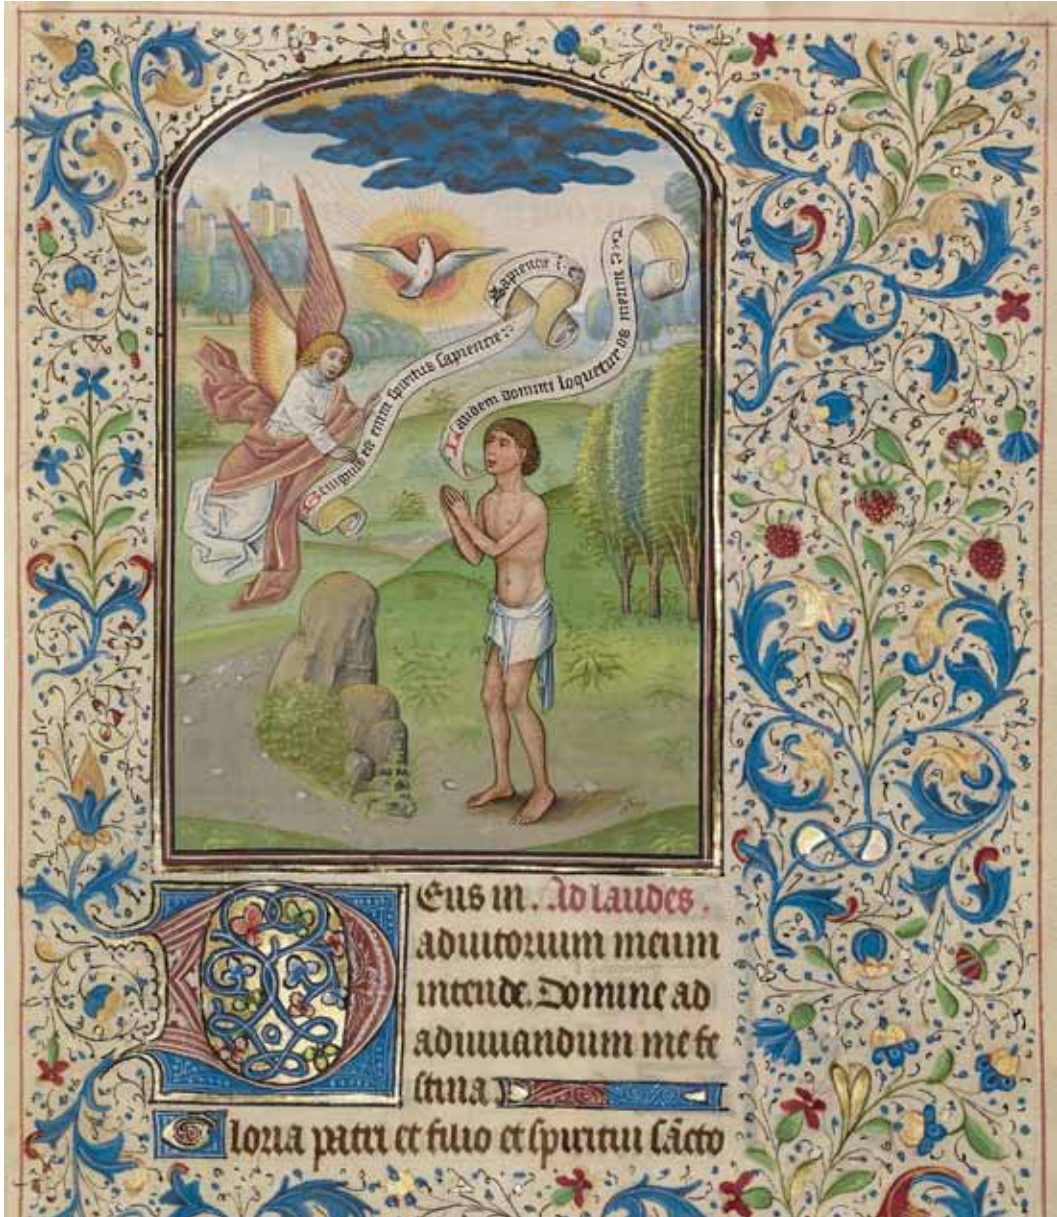 Benignus est enim spiritus sapiencie
Sapience i.
Laudem domini loquetur os meum
DEus in. Ad laudes.
adiutorium meum
intende. Domine ad
adiuuandum me fe
stina
Gloria patri et filio et spiritui sācto